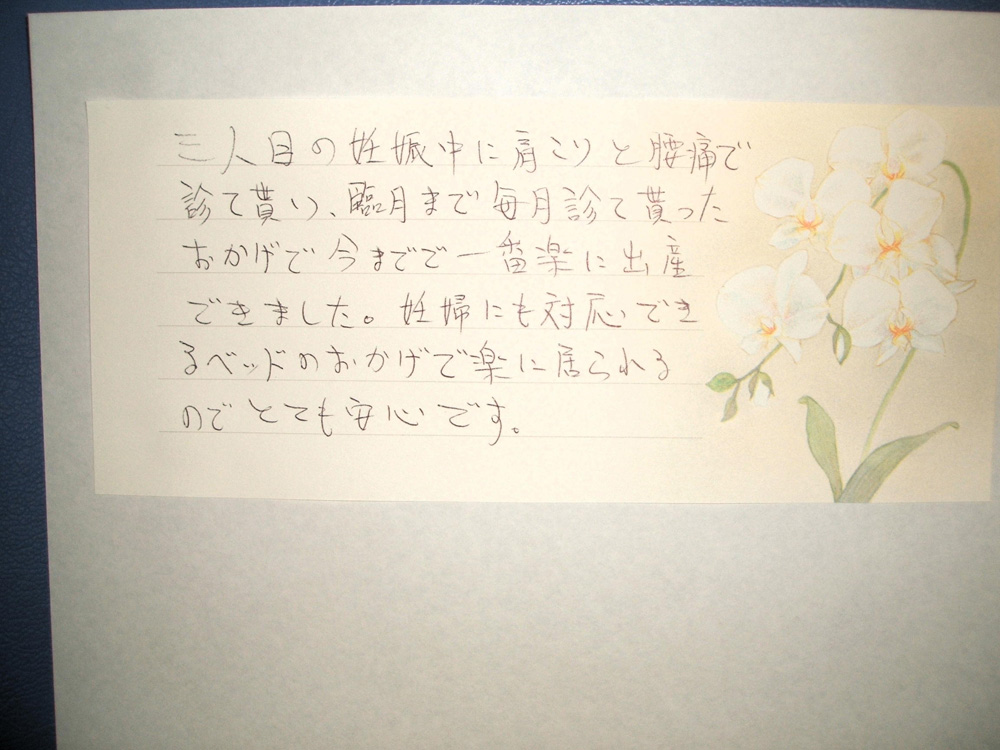 三人目の妊娠中に肩こりと腰痛で
診て貰い、臨月まで毎月診て貰った
おかげで今までで一番楽に出産
できました。妊婦にも対応でき
るベッドのおかげで楽に居られる
のでとても安心です。